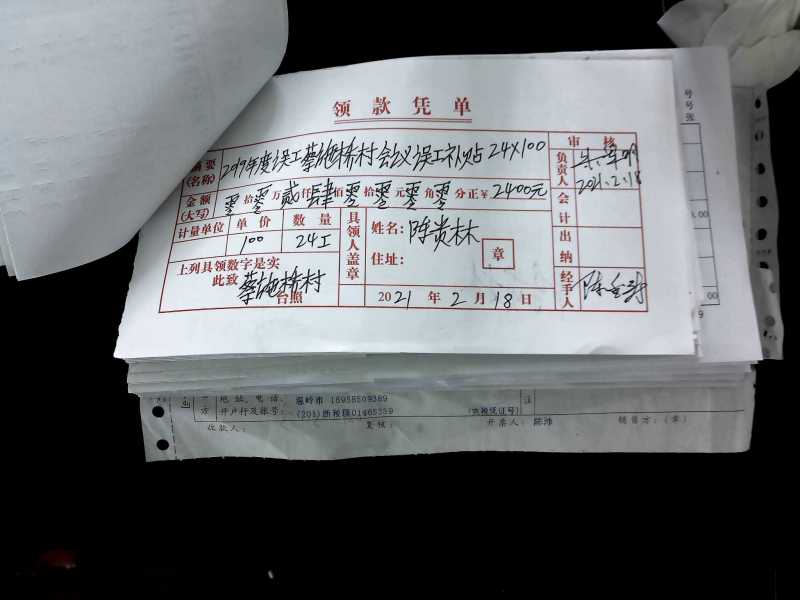 领款凭单
摘要(名称) 2019年度误工蔡施桥村会议误工补贴24×100
审核
负责人
2021.2.18
金额(大写) 零拾零万贰仟肆佰零拾零元零角零分正¥2400元
会计
计量单位 单价 数量
100 24工
具领人盖章
姓名:陈贵林
住址:
章
出纳
上列具领数字是实
此致
蔡施桥村
台照
2021年2月18日
经手人
号
号
张
00
00
9
方
地址、电话: 温岭市 15958509389
开户行及账号:
注
收款人:
复核:
开票人: 陈沛
销售方:(章)